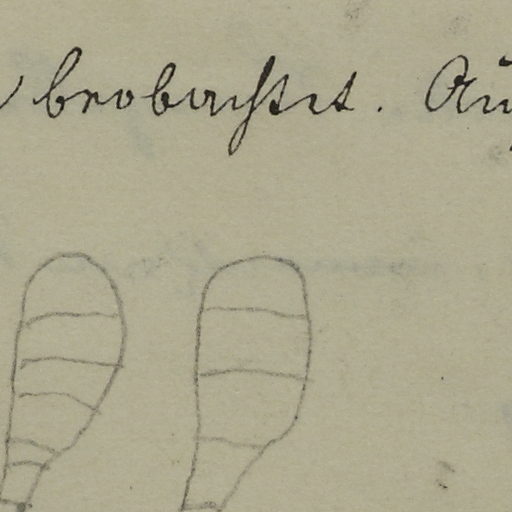 beobachtet. Au